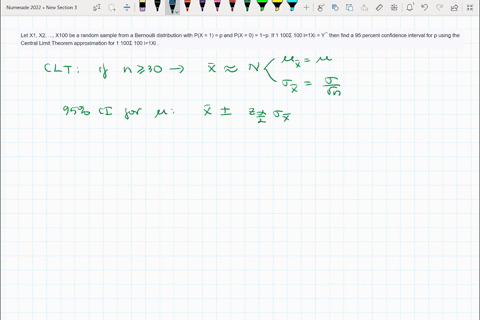 Numerade 2022 » New Section 3
Let X1, X2, ..., X100 be a random sample from a Bernoulli distribution with P(X = 1) = p and P(X = 0) = 1−p. If 1 100Σ 100 i=1Xi = Y¯ then find a 95 percent confidence interval for p using the
Central Limit Theorem approximation for 1 100Σ 100 i=1Xi .
CLT: if n ≥ 30 → x̄ ≈ N < μx̄ = μ
σx̄ = σ/√n
95% CI for μ: x̄ ± z α/2 σx̄